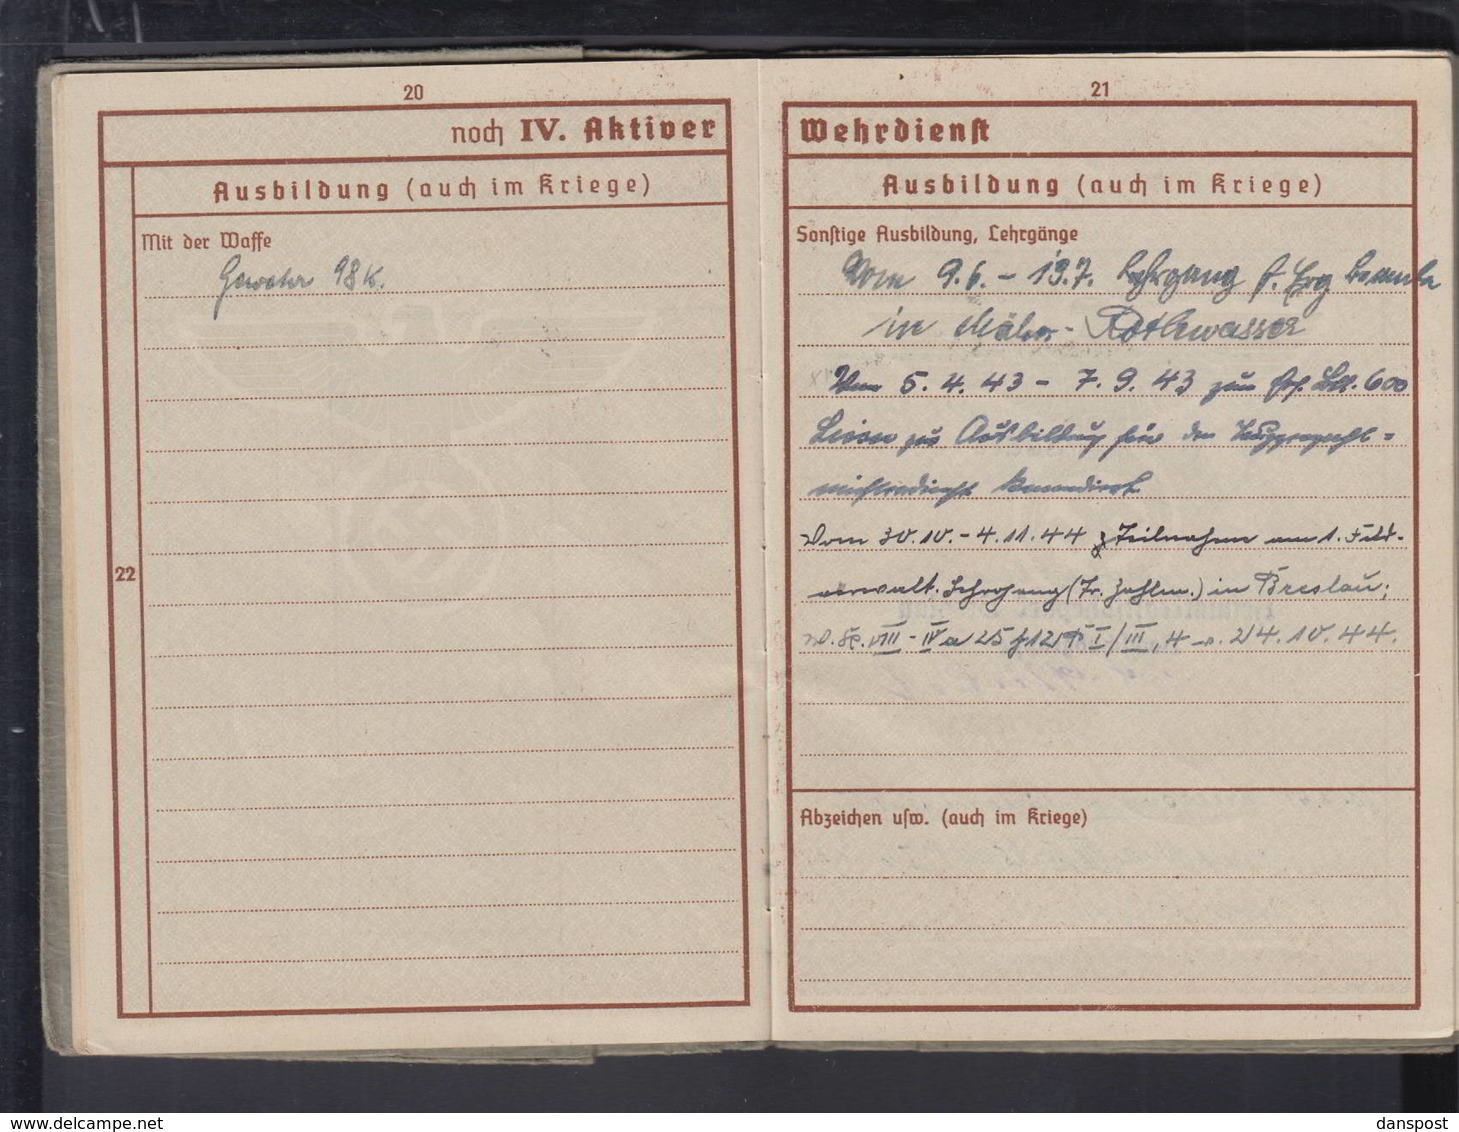 20
noch IV. Aktiver
Ausbildung (auch im Kriege)
Mit der Waffe
Gewehr 98 K.
22
21
Wehrdienst
Ausbildung (auch im Kriege)
Sonstige Ausbildung, Lehrgänge
Vom 9.6. - 13.7. Lehrgang f.
in Mähr. Rothwasser
Vom 5.4.43 - 7.9.43 zum 600
zur Ausbildung für den
kommandiert
Vom 30.10. - 4.11.44 Teilnahme am 1. Feld-
verwalt. Lehrgang (Tr. Zahlm.) in Breslau;
VIII - IV a 25 I/III, 4 v. 24.10.44.
Abzeichen usw. (auch im Kriege)
danspost